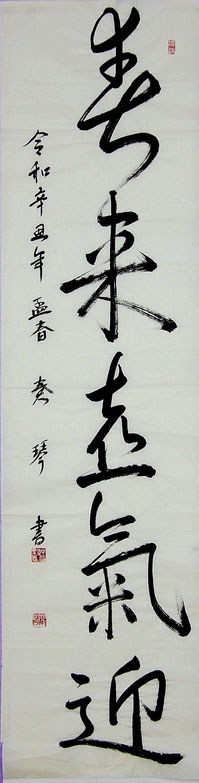 春来喜氣迎
令和辛丑年 孟春 琴 書